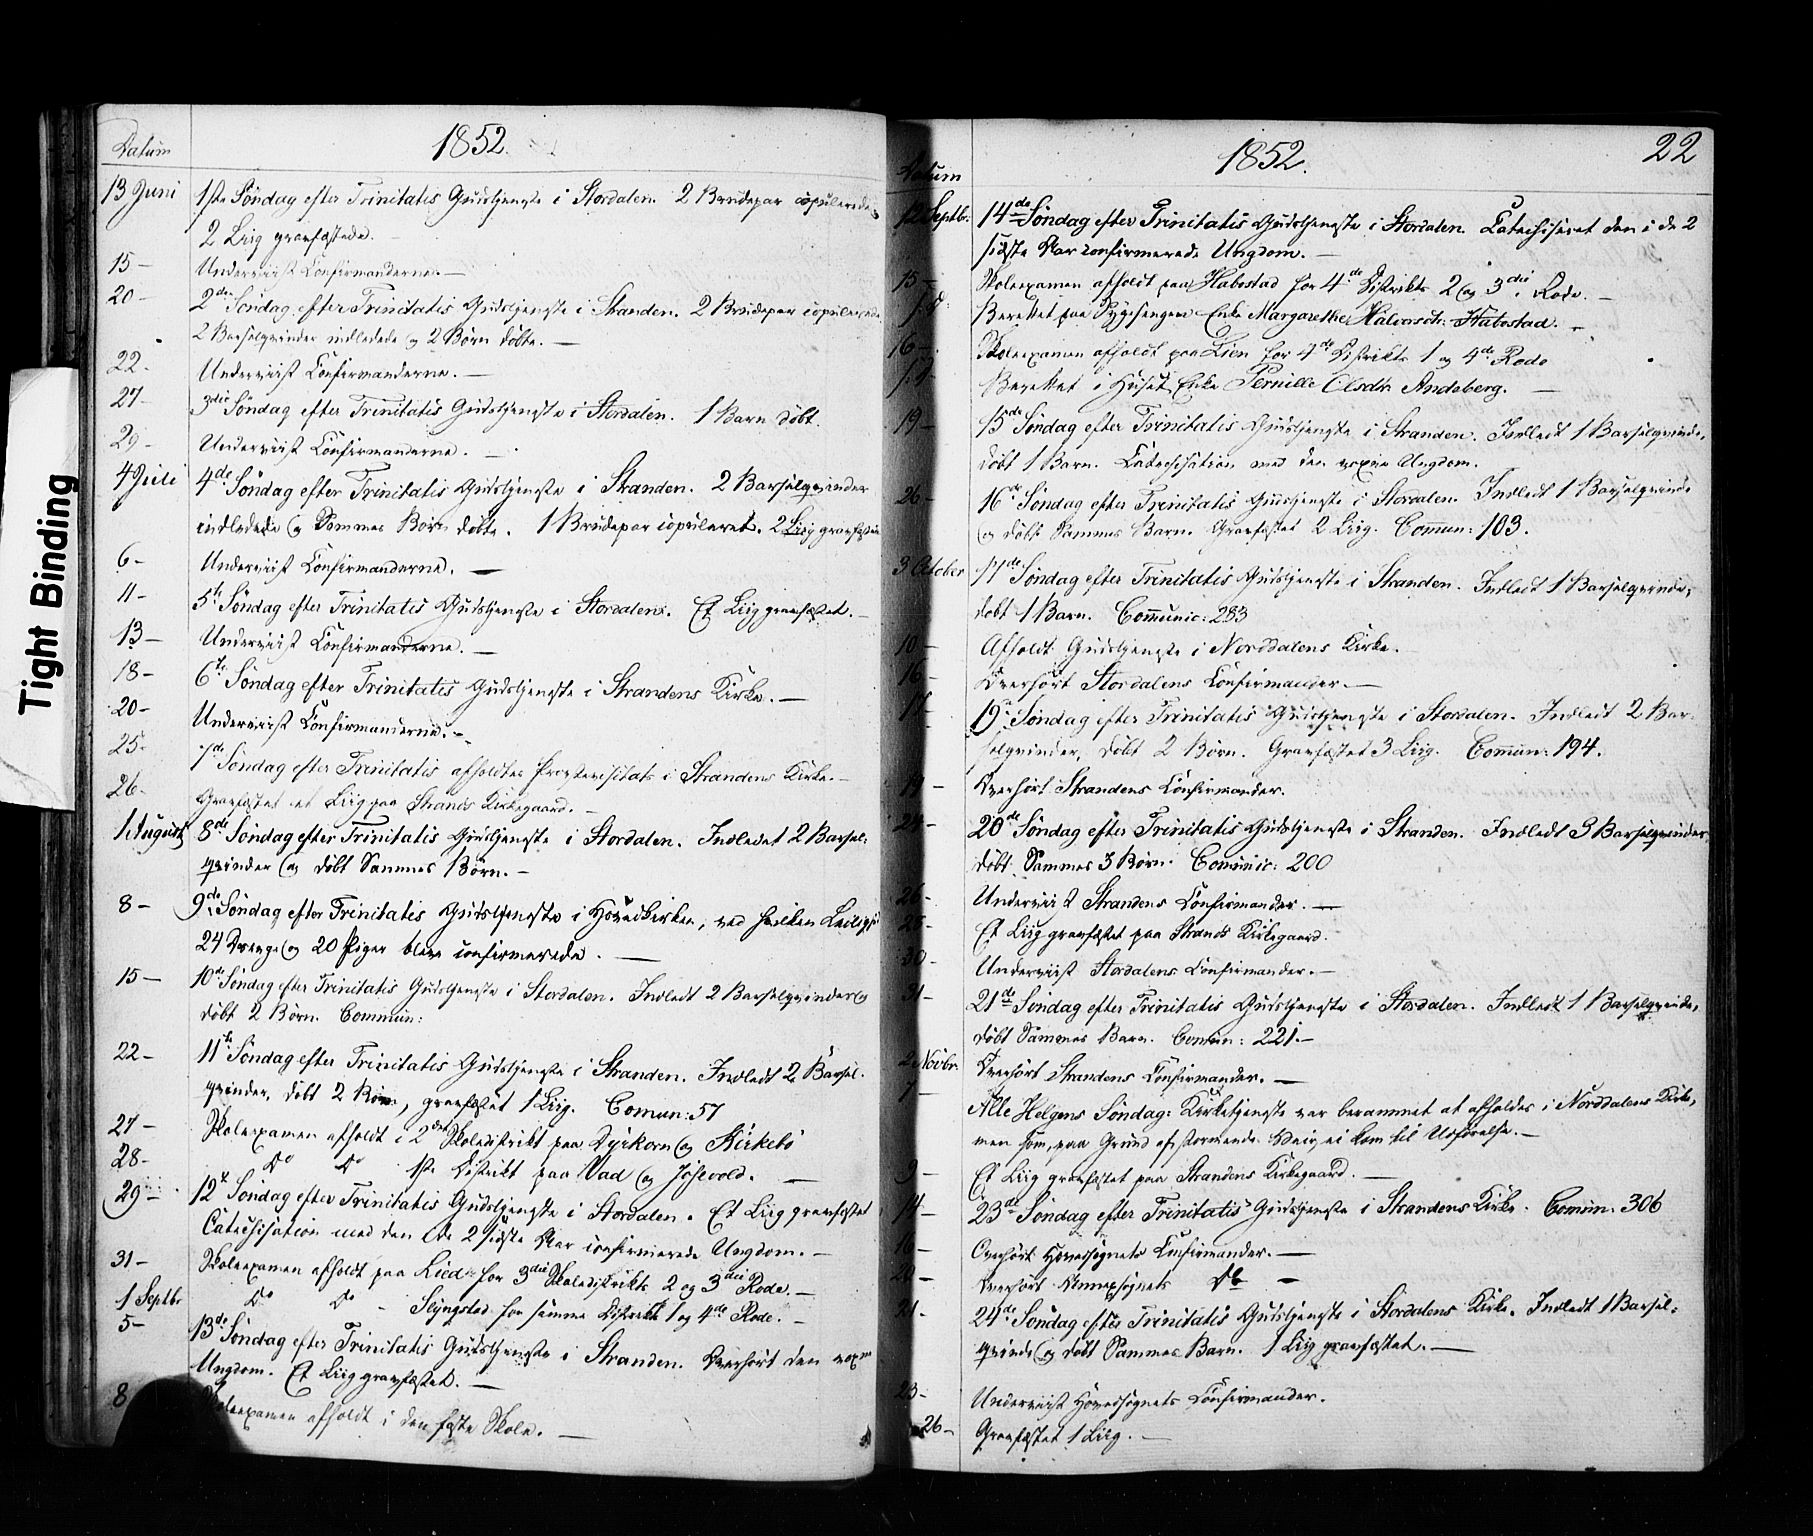 Tight Binding
Datum 1852.
13 Juni 1ste Søndag efter Trinitatis Gudstjeneste i Stordalen. 2 Brudepar copulerede,
2 Liig gravfæstede.
15 — Underviist Confirmanderne. —
20 — 2den Søndag efter Trinitatis Gudstjeneste i Stranden. 2 Brudepar copulerede
2 Barselqvinder indledede og 2 Børn døbte. —
22. Underviist Confirmanderne. —
27 — 3die Søndag efter Trinitatis Gudstjeneste i Stordalen. 1 Barn døbt.
29 — Underviist Confirmanderne. —
4 Juli 4de Søndag efter Trinitatis Gudstjeneste i Stranden. 2 Barselqvinder
indledede og Sammes Børn døbte. 1 Brudepar copuleret. 2 Liig gravfæstede
6 — Underviist Confirmanderne. —
11 — 5te Søndag efter Trinitatis Gudstjeneste i Stordalen. Et Liig gravfæstet. —
13 — Underviist Confirmanderne. —
18 — 6te Søndag efter Trinitatis Gudstjeneste i Strandens Kirke. —
20 — Underviist Confirmanderne. —
25. 7de Søndag efter Trinitatis afholdtes Provstevisitats i Strandens Kirke. —
26. Gravfæstet et Liig paa Strands Kirkegaard. —
1 August 8de Søndag efter Trinitatis Gudstjeneste i Stordalen. Indledet 2 Barsel-
qvinder og døbt Sammes Børn. —
8 — 9de Søndag efter Trinitatis Gudstjeneste i Hovedkirken, ved hvilken Leilighed
24 Drenge og 20 Piger bleve confirmerede. —
15 — 10de Søndag efter Trinitatis Gudstjeneste i Stordalen. Indledt 2 Barselqvinder og
døbt 2 Børn. Commun:
22 — 11te Søndag efter Trinitatis Gudstjeneste i Stranden. Indledt 2 Barsel-
qvinder, døbt 2 Børn, gravfæstet 1 Liig. Comun: 57
27 — Skoleexamen afholdt i 2det Skoledistrikt paa Dyrkorn og Kirkebø
28 — Do Do 1ste Distrikt paa Vad og
29 — 12te Søndag efter Trinitatis Gudstjeneste i Stordalen. Et Liig gravfæstet
Catechisation med den i de 2 sidste Aar confirmerede Ungdom. —
31 — Skoleexamen afholdt paa Lied for 3die Skoledistrikts 2 og 3die Rode. —
1 Septbr Do Do — for samme Distrikt 1 og 4de Rode. —
5 — 13de Søndag efter Trinitatis Gudstjeneste i Stranden. Overhørt den voxne
Ungdom. Et Liig gravfæstet. —
8 Skoleexamen afholdt i den faste Skole. —
Datum 1852. 22
12 Septbr. 14de Søndag efter Trinitatis Gudstjeneste i Stordalen. Catechiseret den i de 2
sidste Aar confirmerede Ungdom. —
15 — Skoleexamen afholdt paa Habostad for 4de Distrikts 2 og 3die Rode. —
s. d. Berettet paa Sygesengen Enke Margarethe Halvorsdtr. Habostad. —
16 — Skoleexamen afholdt paa Lien for 4de Distrikts 1 og 4de Rode
s. d. Berettet i Huset Enke Pernille Olsdtr Andeberg. —
19 — 15de Søndag efter Trinitatis Gudstjeneste i Stranden. Indledt 1 Barselqvinde,
døbt 1 Barn. Catechisation med den voxne Ungdom.
26 — 16de Søndag efter Trinitatis Gudstjeneste i Stordalen. Indledt 1 Barselqvinde
og døbt Sammes Barn. Gravfæstet 2 Liig. Comun: 103.
3 October 17de Søndag efter Trinitatis Gudstjeneste i Stranden. Indledt 1 Barselqvinde,
døbt 1 Barn. Communic: 283
10 — Afholdt Gudstjeneste i Norddalens Kirke. —
16 — Overhørt Stordalens Confirmander. —
17 19de Søndag efter Trinitatis Gudstjeneste i Stordalen. Indledt 2 Bar-
selqvinder, døbt 2 Børn. Gravfæstet 3 Liig. Comun: 194.
19 — Overhørt Strandens Confirmander.
24 — 20de Søndag efter Trinitatis Gudstjeneste i Stranden. Indledt 3 Barselqvinder,
døbt Sammes 3 Børn. Communic: 200
26 — Underviist Strandens Confirmander. —
28 — Et Liig gravfæstet paa Strands Kirkegaard.
30 — Underviist Stordalens Confirmander. —
31 — 21de Søndag efter Trinitatis Gudstjeneste i Stordalen. Indledt 1 Barselqvinde,
døbt Sammes Barn. Comun: 221. —
2 Novbr. Overhørt Strandens Confirmander. —
7 — Alle Helgens Søndag: Kirketjeneste var berammet at afholdes i Norddalens Kirke,
men som, paa Grund af stormende Veir, ei kom til Udførelse. —
9 — Et Liig gravfæstet paa Strandens Kirkegaard. —
14 — 23de Søndag efter Trinitatis Gudstjeneste i Strandens Kirke. Comun: 306
16 — Overhørt Hovedsognets Confirmander. —
20 — Overhørt Annexsognets Do —
21. 24de Søndag efter Trinitatis Gudstjeneste i Stordalens Kirke. Indledt 1 Barsel-
qvinde og døbt Sammes Barn. 1 Liig gravfæstet. —
23 — Underviist Hovedsognets Confirmander.
26 — Gravfæstet 1 Liig. —